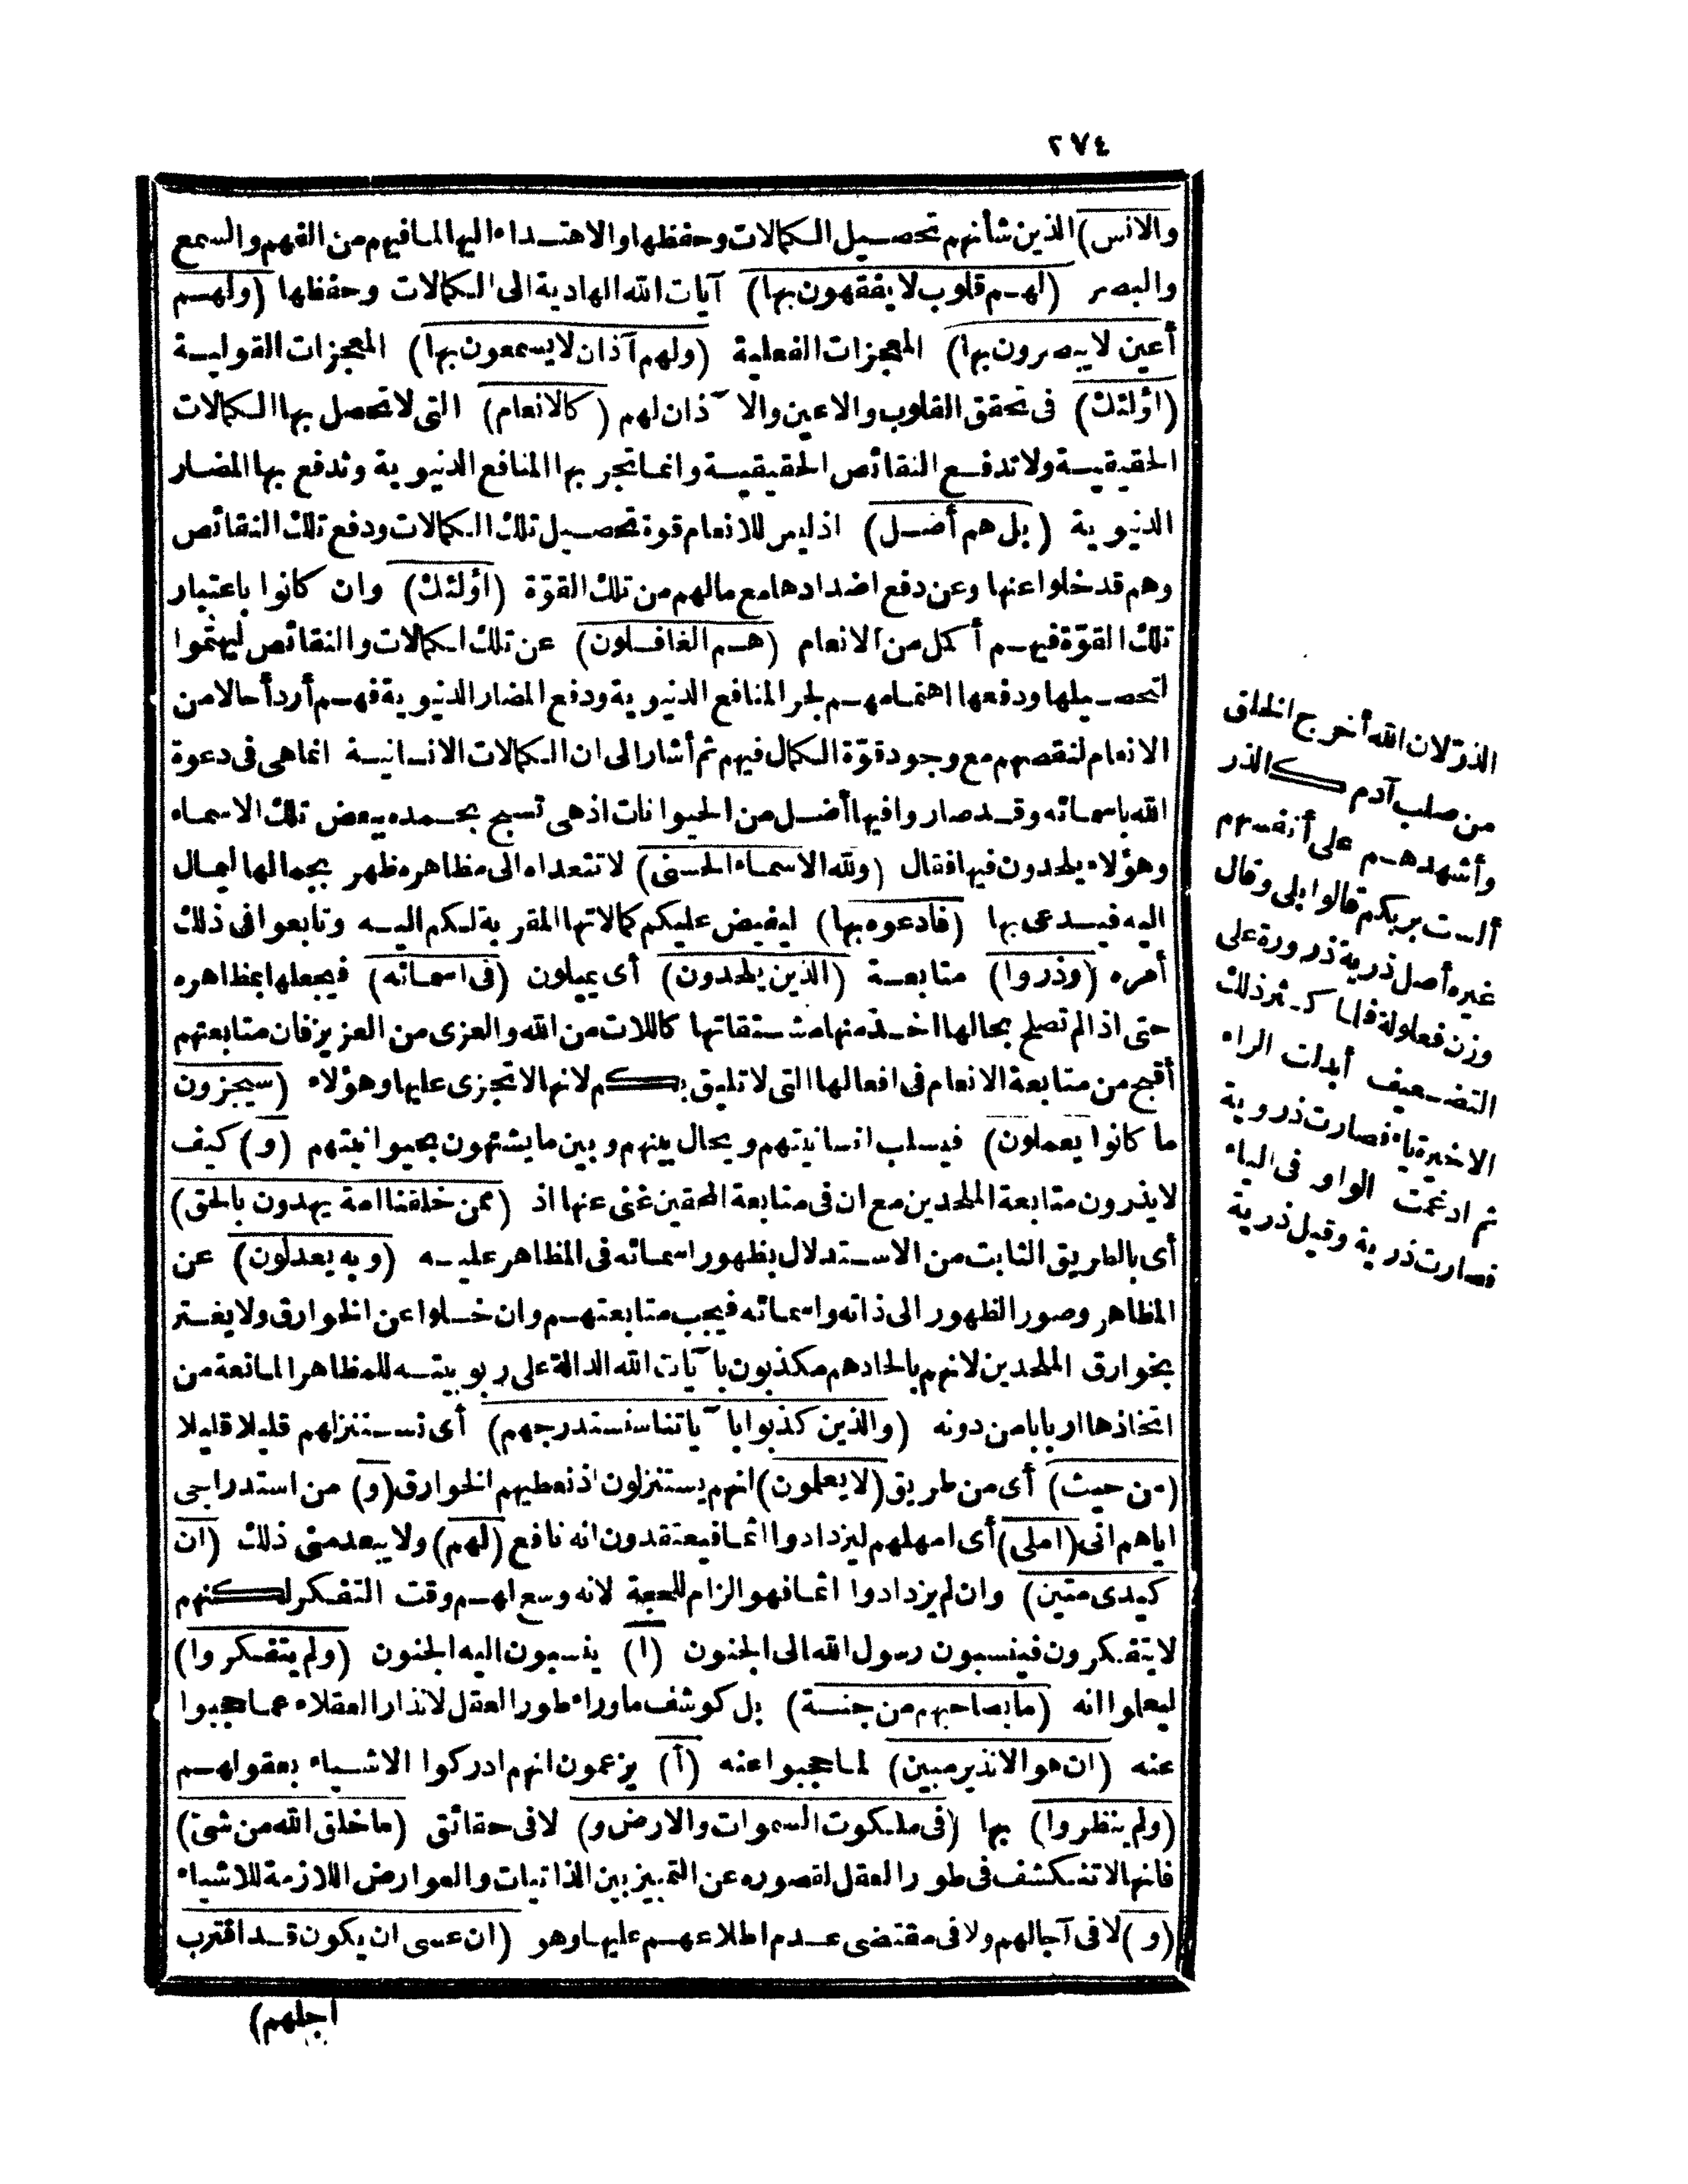 ٢٧٤
والانس) الذين شأنهم تحصيل الكمالات وحفظها والاهتداء اليها لما فيهم من الفهم والسمع
والبصر (لهم قلوب لا يفقهون بها) آيات الله الهادية الى الكمالات وحفظها (ولهم
أعين لا يبصرون بها) المعجزات الفعلية (ولهم آذان لا يسمعون بها) المعجزات القولية
(اؤلئك) فى تحقق القلوب والاعين والآذان لهم (كالانعام) التى لا تحصل بها الكمالات
الحقيقية ولا تدفع النقائص الحقيقية وانما تجر بها المنافع الدنيوية وتدفع بها المضار
الدنيوية (بل هم أضل) اذ ليس للانعام قوة تحصيل تلك الكمالات ودفع تلك النقائص
وهم قد خلوا عنها وعن دفع اضدادها مع مالهم من تلك القوّة (اؤلئك) وان كانوا باعتبار
تلك القوّة فيهم أكمل من الانعام (هم الغافلون) عن تلك الكمالات والنقائص ليهتموا
لتحصيلها ودفعها اهتمامهم لجر المنافع الدنيوية ودفع المضار الدنيوية فهم أردأ حالا من
الانعام لنقصهم مع وجود قوّة الكمال فيهم ثم أشار الى ان الكمالات الانسانية انما هى فى دعوة
الله باسمائه وقد صاروا فيها أضل من الحيوانات اذ هى تسبح بحمده ببعض تلك الاسماء
وهؤلاء يلحدون فيها فقال (ولله الاسماء الحسنى) لا تتعداه الى مظاهره ظهر بجمالها لجمال
اليه فيدعى بها (فادعوه بها) ليفيض عليكم كمالاتها المقربة لكم اليه وتابعوا فى ذلك
أمره (وذروا) متابعة (الذين يلحدون) أى يميلون (فى اسمائه) فيجعلها بمظاهره
حتى اذا لم تصلح بحالها اخذ منها مشتقاتها كاللات من الله والعزى من العزيز فان متابعتهم
أقبح من متابعة الانعام فى افعالها التى لا تليق بكم لانها لا تجزى عليها وهؤلاء (سيجزون
ما كانوا يعملون) فيسلب انسانيتهم ويحال بينهم وبين ما يشتهون بحيوانيتهم (و) كيف
لا يذرون متابعة الملحدين مع ان فى متابعة المحقين غنى عنها اذ (ممن خلقنا امة يهدون بالحق)
أى بالطريق الثابت من الاستدلال بظهور اسمائه فى المظاهر عليه (وبه يعدلون) عن
المظاهر وصور الظهور الى ذاته واسمائه فيجب متابعتهم وان خلوا عن الخوارق ولا يغتر
بخوارق الملحدين لانهم بالحادهم مكذبون بآيات الله الدالة على ربوبيته للمظاهر المانعة من
اتخاذها اربابا من دونه (والذين كذبوا بآياتنا سنستدرجهم) أى نستنزلهم قليلا قليلا
(من حيث) أى من طريق (لا يعلمون) انهم يستنزلون اذ نعطيهم الخوارق (و) من استدراجى
اياهم انى (املى) أى امهلهم ليزدادوا اثما فيعتقدون انه نافع (لهم) ولا يبعد منى ذلك (ان
كيدى متين) وان لم يزدادوا اثما فهو الزام للحجة لانه وسع لهم وقت التفكر لكنهم
لا يتفكرون فينسبون رسول الله الى الجنون (ا) ينسبون اليه الجنون (ولم يتفكروا)
ليعلموا انه (ما بصاحبهم من جنة) بل كوشف ما وراء طور العقل لانذار العقلاء عما حجبوا
عنه (ان هو الا نذير مبين) لما حجبوا عنه (أ) يزعمون انهم ادركوا الاشياء بعقولهم
(ولم ينظروا) بها (فى ملكوت السموات والارض و) لا فى حقائق (ما خلق الله من شئ)
فانها لا تنكشف فى طور العقل لقصوره عن التمييز بين الذاتيات والعوارض اللازمة للاشياء
(و) لا فى آجالهم ولا فى مقتضى عدم اطلاعهم عليها وهو (ان عسى ان يكون قد اقترب
اجلهم)
الذرّ لان الله أخرج الخلق
من صلب آدم كالذر
وأشهدهم على أنفسهم
ألست بربكم قالوا بلى وقال
غيره أصل ذرية ذرورة على
وزن فعلولة فلما كثر ذلك
التضعيف أبدلت الراء
الاخيرة ياء فصارت ذروية
ثم ادغمت الواو فى الياء
فصارت ذرية وقيل ذرية